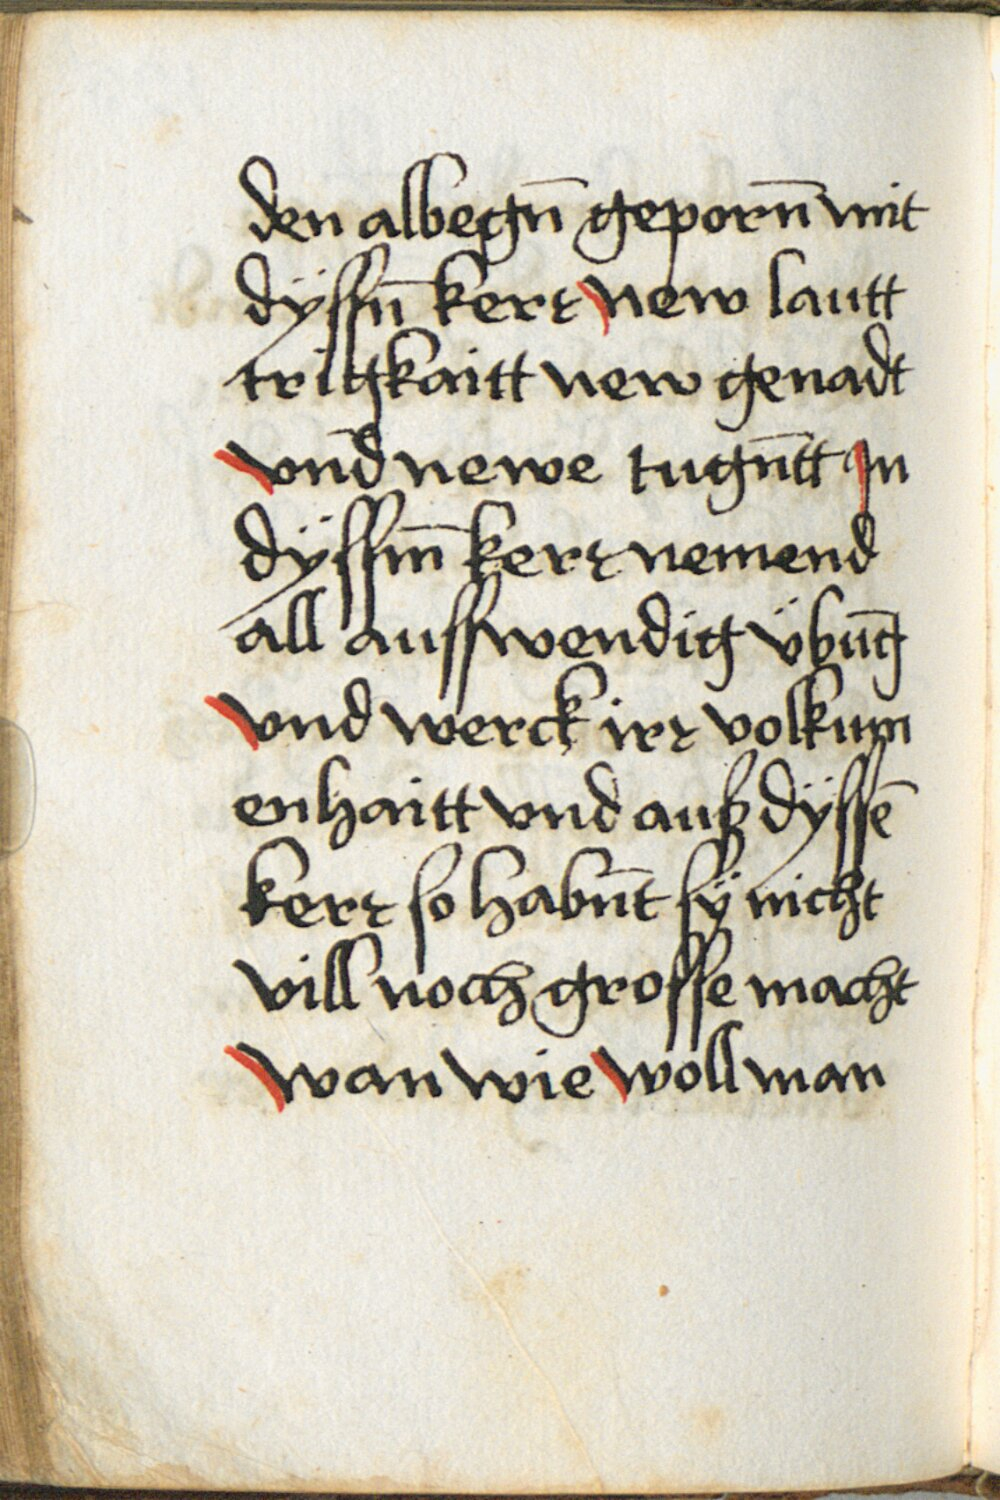 den albegn̄ geporn̄ mit
dÿssn̄ kerr new lautt
trigkaitt new genadt
vnd̄ newe tugn̄tt Jn
dÿssm̄ kerr nemend
all ausswendig v̈būg
vnd werck irr volkum
enhaitt vnd auß dÿssē
kerr so habn̄t sÿ nicht
vill noch grosse macht
wan wie woll man